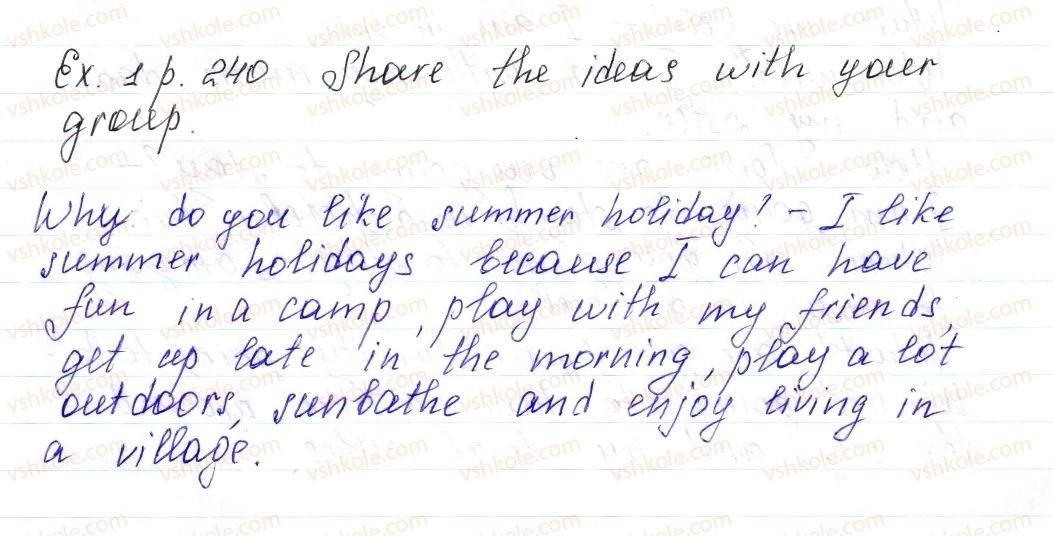 Ex. 1 p. 240 Share the ideas with your
group.
Why do you like summer holiday? - I like
summer holidays because I can have
fun in a camp, play with my friends,
get up late in the morning, play a lot
outdoors, sunbathe and enjoy living in
a village.
vshkole.com